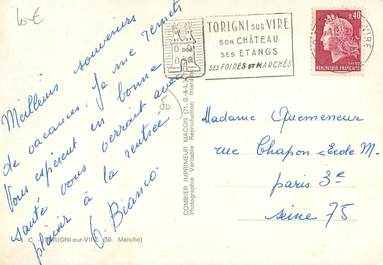 10€
Meilleurs souvenirs
de vacances. Je me remets
Vous espérent en bonne
santé vous verrait avec
plaisir à la rentrée
G. Bianco
TORIGNI SUR VIRE
SON CHÂTEAU
SES ETANGS
SES FOIRES ET MARCHÉS
VIRE
0,40
REPUBLIQUE FRANÇAISE
COMBIER IMPRIMEUR MACON (71, S.-&-L.)
Photographie Véritable Reproduction Interdite
Madame Quemeneur
rue Chapon Ecole M.
paris 3e
seine 75
TORIGNI-sur-VIRE (50. Manche)